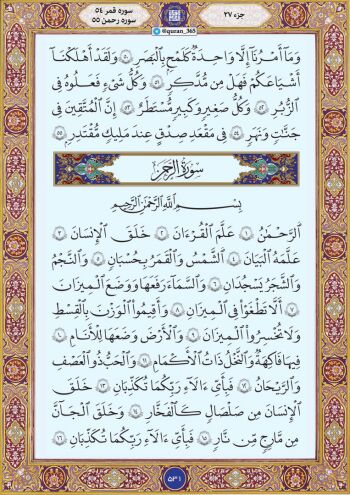 جزء ۲۷
سوره قمر ٥٤
سوره رحمن ٥٥
@quran_365
وَمَآ أَمْرُنَآ إِلَّا وَاحِدَةٌ كَلَمْحٍۭ بِٱلْبَصَرِ ٥٠ وَلَقَدْ أَهْلَكْنَآ
أَشْيَاعَكُمْ فَهَلْ مِن مُّدَّكِرٍ ٥١ وَكُلُّ شَىْءٍ فَعَلُوهُ فِى
ٱلزُّبُرِ ٥٢ وَكُلُّ صَغِيرٍ وَكَبِيرٍ مُّسْتَطَرٌ ٥٣ إِنَّ ٱلْمُتَّقِينَ فِى
جَنَّـٰتٍ وَنَهَرٍ ٥٤ فِى مَقْعَدِ صِدْقٍ عِندَ مَلِيكٍ مُّقْتَدِرٍۭ ٥٥
سُورَةُ الرَّحْمٰن
بِسْمِ ٱللَّهِ ٱلرَّحْمَـٰنِ ٱلرَّحِيمِ
ٱلرَّحْمَـٰنُ ١ عَلَّمَ ٱلْقُرْءَانَ ٢ خَلَقَ ٱلْإِنسَـٰنَ ٣
عَلَّمَهُ ٱلْبَيَانَ ٤ ٱلشَّمْسُ وَٱلْقَمَرُ بِحُسْبَانٍ ٥ وَٱلنَّجْمُ
وَٱلشَّجَرُ يَسْجُدَانِ ٦ وَٱلسَّمَآءَ رَفَعَهَا وَوَضَعَ ٱلْمِيزَانَ
٧ أَلَّا تَطْغَوْا۟ فِى ٱلْمِيزَانِ ٨ وَأَقِيمُوا۟ ٱلْوَزْنَ بِٱلْقِسْطِ
وَلَا تُخْسِرُوا۟ ٱلْمِيزَانَ ٩ وَٱلْأَرْضَ وَضَعَهَا لِلْأَنَامِ ١٠
فِيهَا فَـٰكِهَةٌ وَٱلنَّخْلُ ذَاتُ ٱلْأَكْمَامِ ١١ وَٱلْحَبُّ ذُو ٱلْعَصْفِ
وَٱلرَّيْحَانُ ١٢ فَبِأَىِّ ءَالَآءِ رَبِّكُمَا تُكَذِّبَانِ ١٣ خَلَقَ
ٱلْإِنسَـٰنَ مِن صَلْصَـٰلٍ كَٱلْفَخَّارِ ١٤ وَخَلَقَ ٱلْجَآنَّ
مِن مَّارِجٍ مِّن نَّارٍ ١٥ فَبِأَىِّ ءَالَآءِ رَبِّكُمَا تُكَذِّبَانِ ١٦
۵۳۱